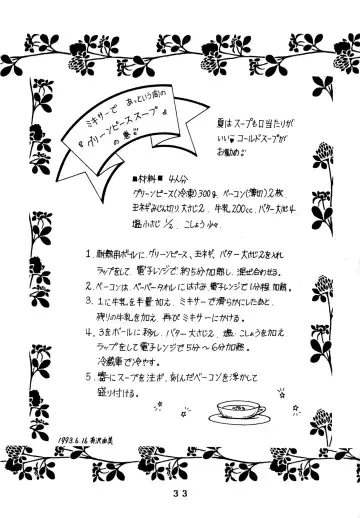 ミキサーで あっという間の
『グリーンピーススープ』
の巻
夏はスープも口当たりが
いい コールドスープが
お勧め
■材料■ 4人分
グリーンピース(冷凍)300g. ベーコン(薄切)2枚
玉ネギみじん切り大さじ2. 牛乳200cc. バター大さじ4
塩小さじ 1/2. こしょう少々.
1. 耐熱用ボールに、グリーンピース、玉ネギ、バター大さじ2を入れ
ラップをして、電子レンジで約5分加熱し、混ぜ合わせる。
2. ベーコンは、ペーパータオルにはさみ、電子レンジで1分程加熱。
3. 1に牛乳を半量加え、ミキサーで滑らかにしたあと、
残りの牛乳を加え、再びミキサーにかける。
4. 3をボールに移し、バター大さじ2、塩、こしょうを加え
ラップをして電子レンジで5分〜6分加熱。
冷蔵庫で冷やす。
5. 器にスープを注ぎ、刻んだベーコンを浮かして
盛り付ける。
1993.6.16 沢由美
33